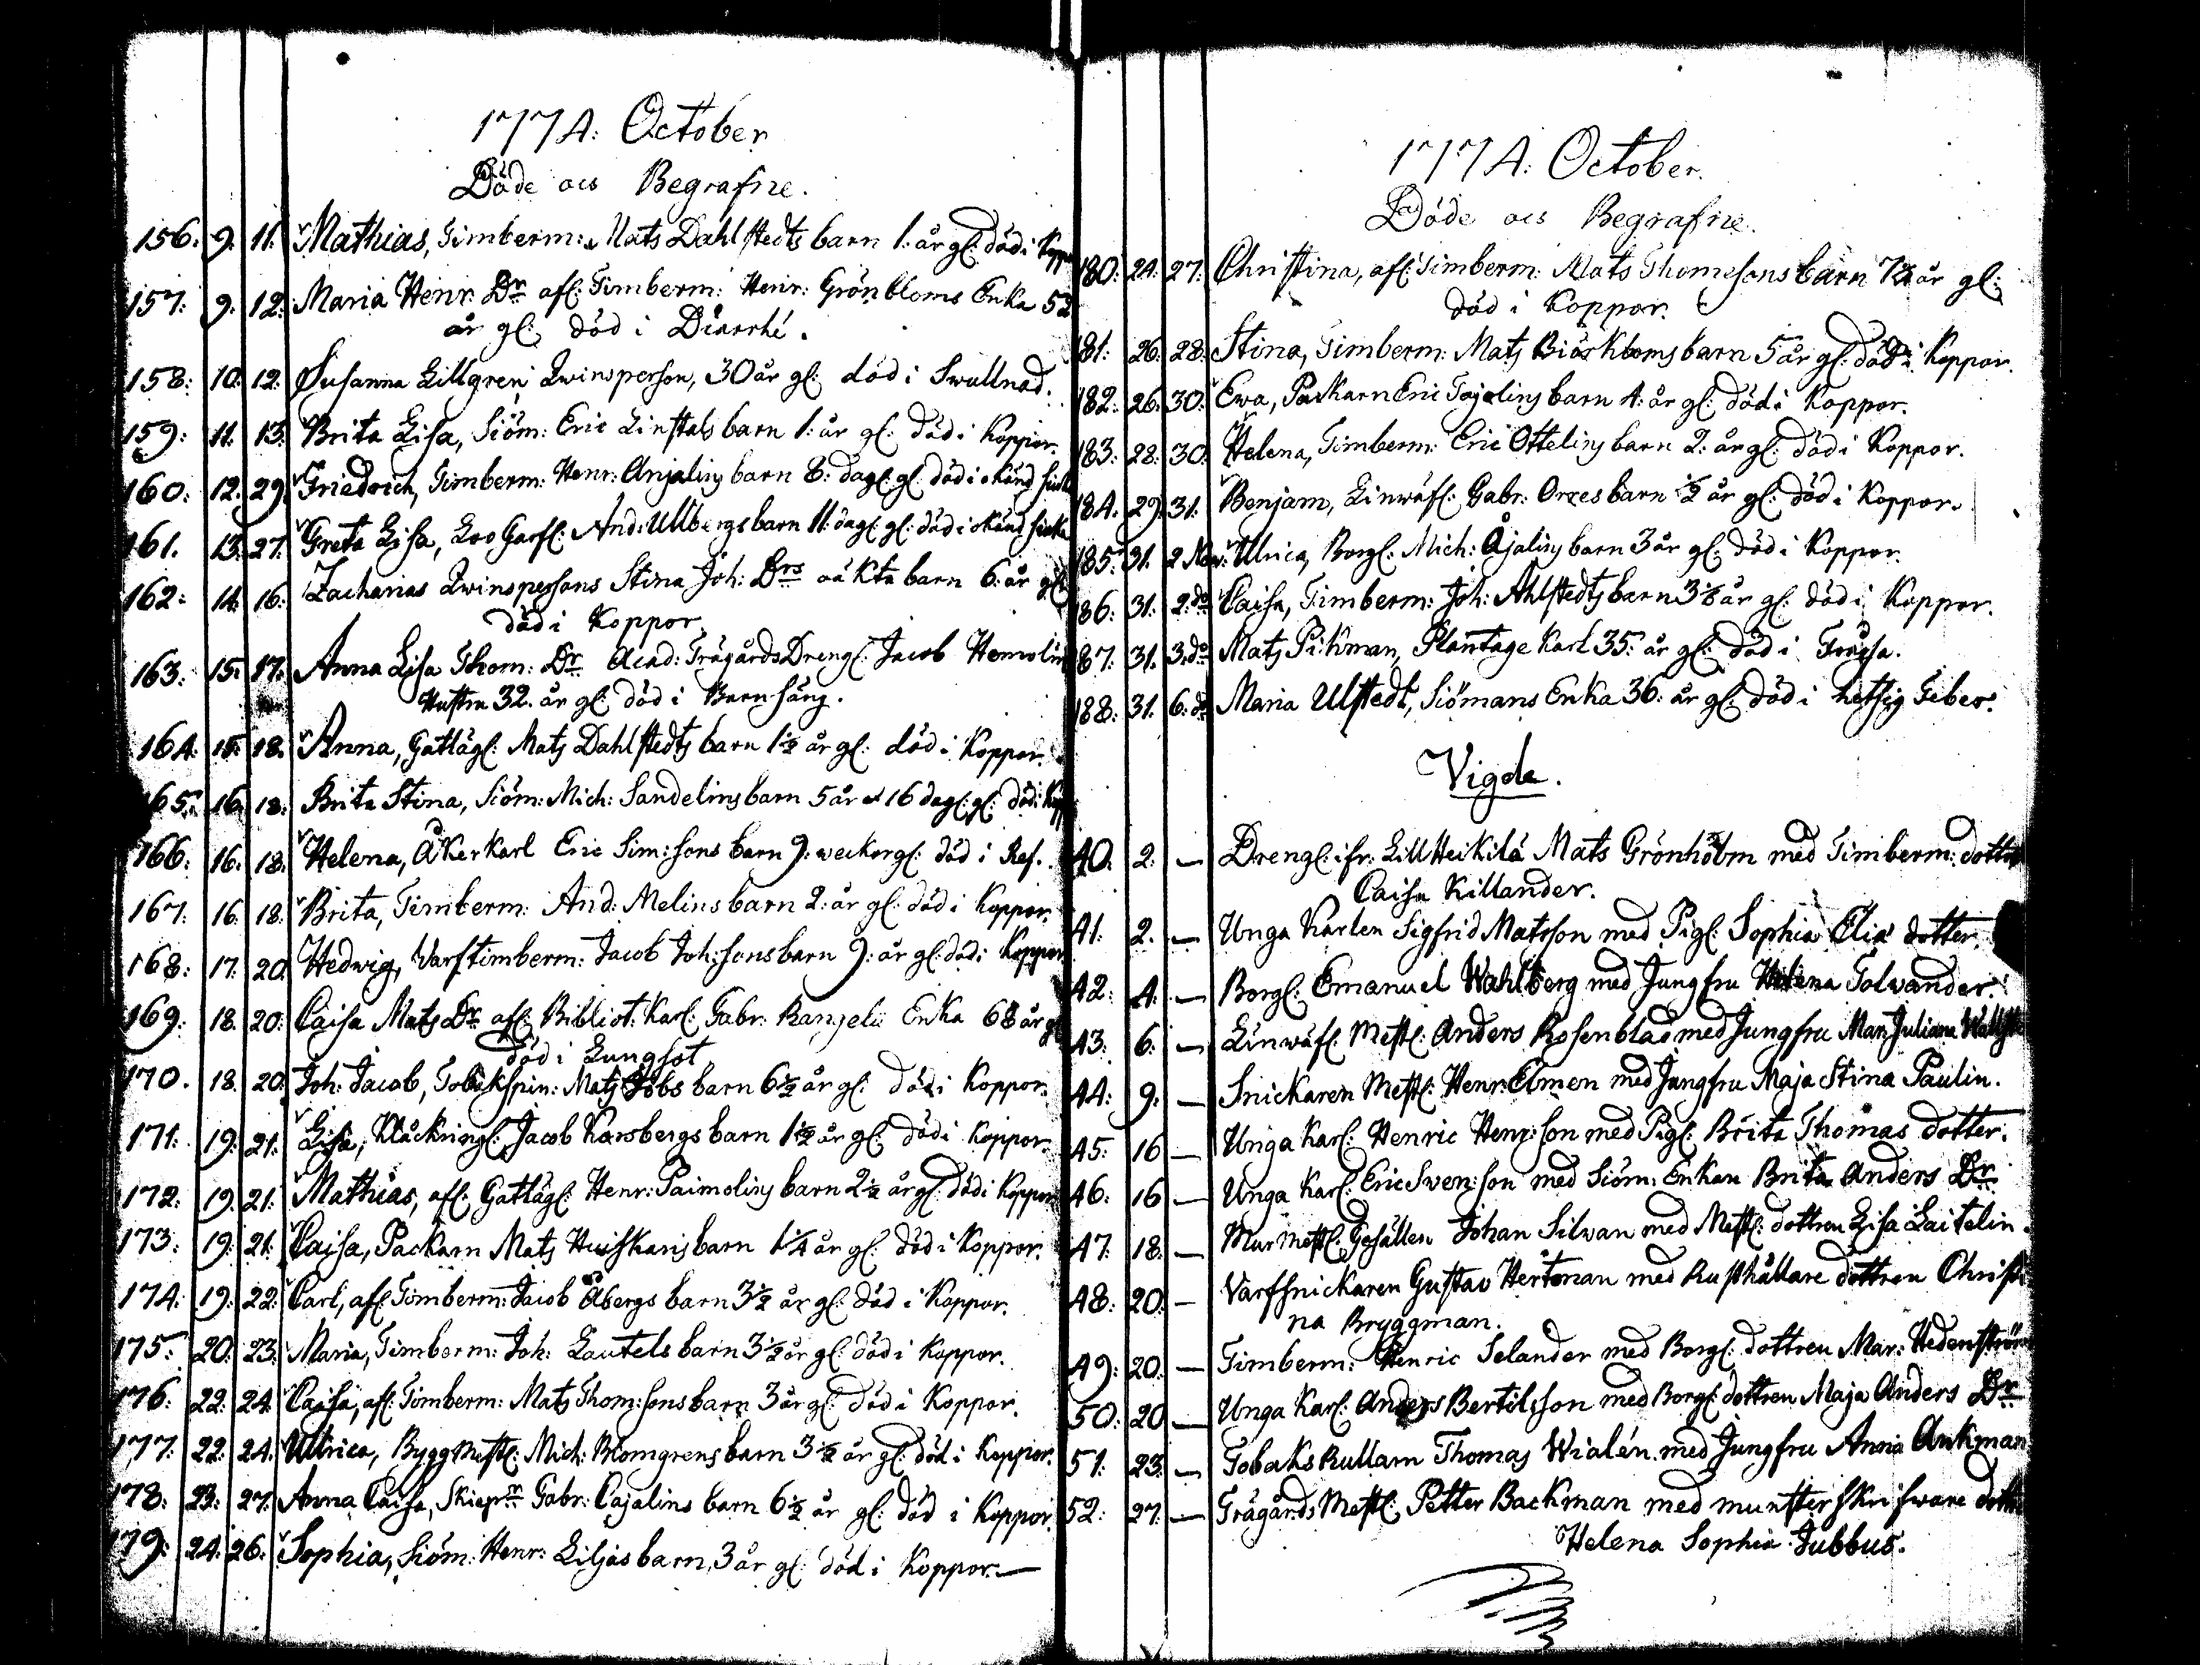 1774: October
Döde och Begrafne.
156: 9: 11: Mathias, Timberm: Mats Dahlstedts barn 1: år gl: död i Kopp
157: 9: 12: Maria Henr: Dr afl: Timberm: Henr: Grönbloms Enka 52
år gl: död i Diarrhé.
158: 10: 12: Susanna Lillgren, Qwinsperson, 30 år gl: död i Swullnad.
159: 11: 13: Brita Lisa, Siöm: Eric Linstals barn 1: år gl: död i Koppor.
160: 12: 29: Friedrich, Timberm: Henr: Anjelins barn 8: dagl: gl: död i okänd
161. 13: 27: Greta Lisa, And: Ullbergs barn 11: dagl: gl: död i okänd
162: 14: 16: Zacharias Qwinspersons Stina Joh: Drs oäkta barn 6: år gl:
död i Koppor.
163: 15: 17: Anna Lisa Thom: Dr Acad: TrägårdsDrengl: Jacob Hemolin
Hustru 32. år gl: död i Barnsäng.
164: 15: 18: Anna, Gatlägl: Mats Dahlstedts barn 1½ år gl: död i Koppor.
165: 16: 18: Brita Stina, Siöm: Mich: Sandelins barn 5 år o 16 dagl: gl: död i Kopp
166: 16: 18: Helena, Åkerkarl Eric Sim:sons barn 9: weckor gl: död i Ref.
167: 16: 18: Brita, Timberm: And: Melins barn 2: år gl: död i Koppor.
168: 17: 20: Hedwig, Varfstimberm: Jacob Joh:sons barn 9: år gl: död i Koppor
169: 18: 20: Caisa Mats Dr afl: Bibliot: Karl: Gabr: Rangelii Enka 68 år gl
död i Lungsot
170. 18: 20: Joh: Jacob, Tobaksspin: Mats Jobs barn 6½ år gl: död i Koppor.
171: 19: 21: Lisa, Klåckringl: Jacob Karsbergs barn 1½ år gl: död i Koppor.
172: 19: 21: Mathias, afl: Gatlägl: Henr: Paimolins barn 2½ år gl: död i Koppor
173: 19: 21: Caisa, Packarn Mats barn 1¼ år gl: död i Koppor.
174: 19: 22: Carl, afl: Timberm: Jacob Åbergs barn 3½ år gl: död i Koppor.
175: 20: 23: Maria, Timberm: Joh: Lautels barn 3½ år gl: död i Koppor.
176: 22: 24: Caisa, afl: Timberm: Mats Thom:sons barn 3 år gl: död i Koppor.
177: 22: 24: Ullrica, ByggMestl: Mich: Blomgrens barn 3½ år gl: död i Koppor.
178: 23: 27: Anna Caisa, Skiepr Gabr: Cajalins barn 6½ år gl: död i Koppor.
179: 24: 26: Sophia, Siöm: Henr: Liljas barn, 3 år gl: död i Koppor.
1774: October.
Döde och Begrafne.
180: 24: 27: Christina, afl: Timberm: Mats Thomesons barn år gl:
död i Koppor.
181: 26: 28: Stina, Timberm: Mats Biörkboms barn 5 år gl: död i Koppor.
182: 26: 30: Ewa, Packarn Eric Tajelins barn 4: år gl: död i Koppor.
183: 28: 30: Helena, Timberm: Eric Ottelins barn 2: år gl: död i Koppor.
184: 29: 31: Benjam, Linwäfl: Gabr: Orres barn ½ år gl: död i Koppor.
185: 31. 2 Nov: Ulrica, Borgl: Mich: Åjalins barn 3 år gl: död i Koppor.
186: 31: 2: do Caisa, Timberm: Joh: Ahlstedts barn år gl: död i Koppor.
187: 31. 3: do Mats Pihman, Plantage Karl 35: år gl: död i Frossa.
188: 31. 6: do Maria Ulstedt, Siömans Enka 36: år gl: död i hetsig Feber.
Vigde.
40. 2: — Drengl: ifr: LillHeikilä Mats Grönholm med Timberm: dotter
Caisa Killander.
41. 2. — Unga Karlen Sigfrid Matsson med Pigl: Sophia Elia dotter
42: 4: — Borgl: Emanuel Wahlberg med Jungfru Helena Tolwander.
43: 6: — Linwäfl: Mestl: Anders Rosenblad med Jungfru Mar: Juliana
44: 9: — Snickaren Mestl: Henr: Elmen med Jungfru Maja Stina Paulin.
45: 16 — Unga Karl: Henric Henr:son med Pigl: Brita Thomas dotter.
46: 16 — Unga Karl: Eric Swen:son med Siöm: Enkan Brita Anders Dr
47: 18: — MurMestl: Gesällen Johan Silwan med Mestl: dottren Lisa Laitelin.
48: 20: — Varfsnickaren Gustav Hertman med Rusthållare dottren Christi
na Bryggman.
49: 20: — Timberm: Henric Selander med Borgl: dottren Mar: Hedenström
50: 20 — Unga Karl: Anders Bertilsson med Borgl: dottren Maja Anders Dr
51: 23: — TobaksRullarn Thomas Wialén med Jungfru Anna Ankman
52: 27: — Trägårds Mestl: Petter Backman med munsterskrifware dotter
Helena Sophia Jubbus.